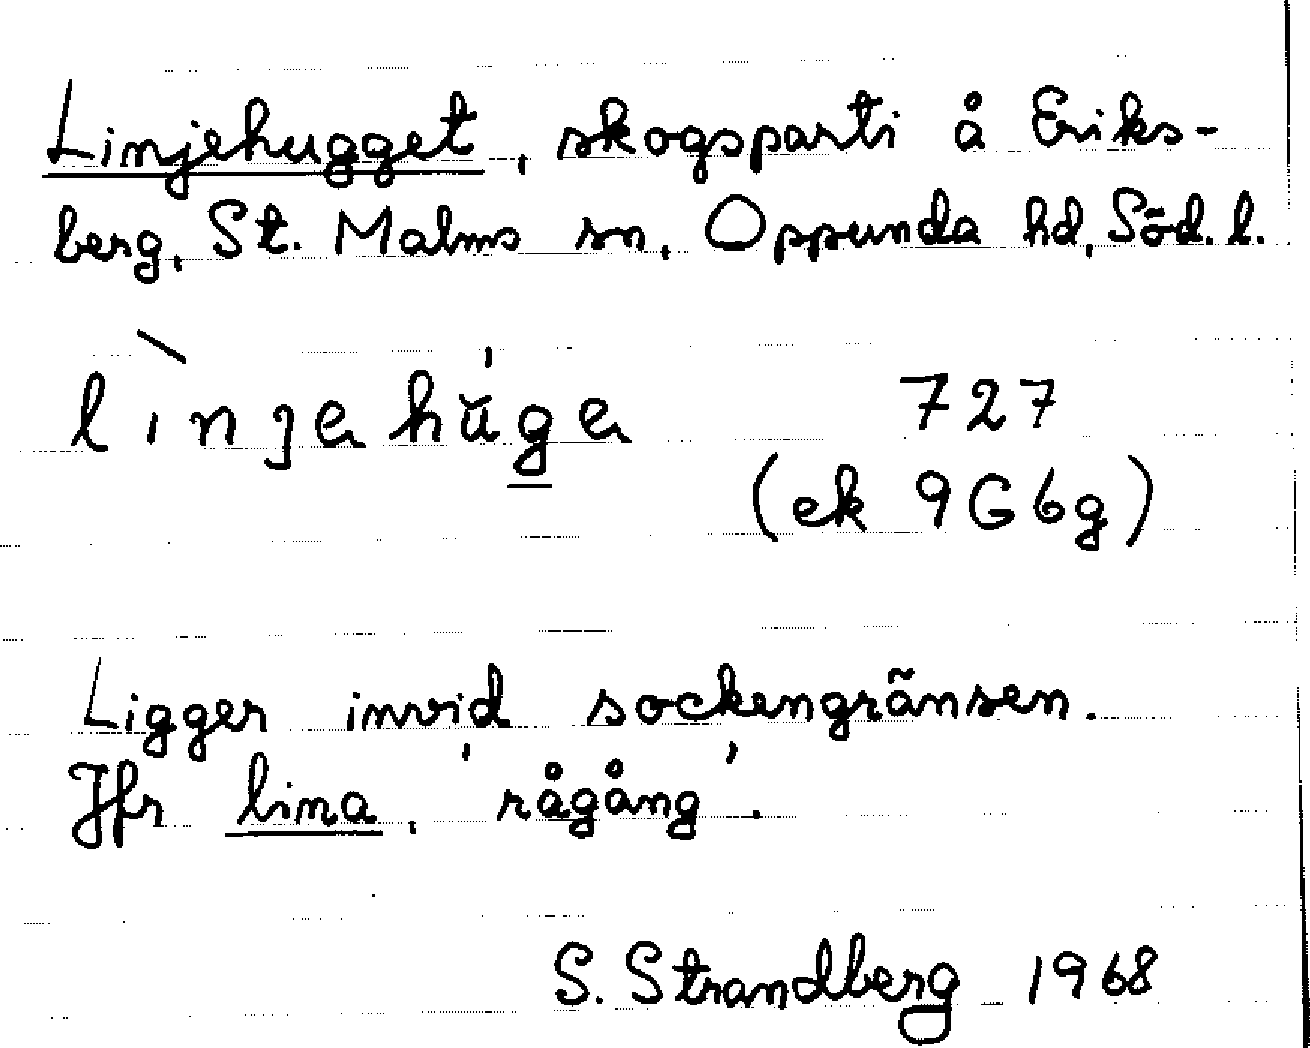 Linjehugget, skogsparti å Eriks-
berg, St. Malms sn, Oppunda hd, Söd. l.
lìnjehŭ́ge 727
(ek 9G6g)
Ligger invid sockengränsen.
Jfr lina, 'rågång'.
S. Strandberg 1968